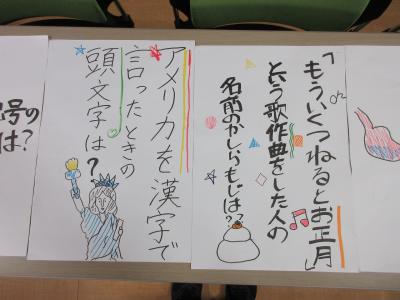 「もういくつねるとお正月」
という歌作曲をした人の
名前のかしらもじは??
アメリカを漢字で
言ったときの
頭文字は?
号の
は?